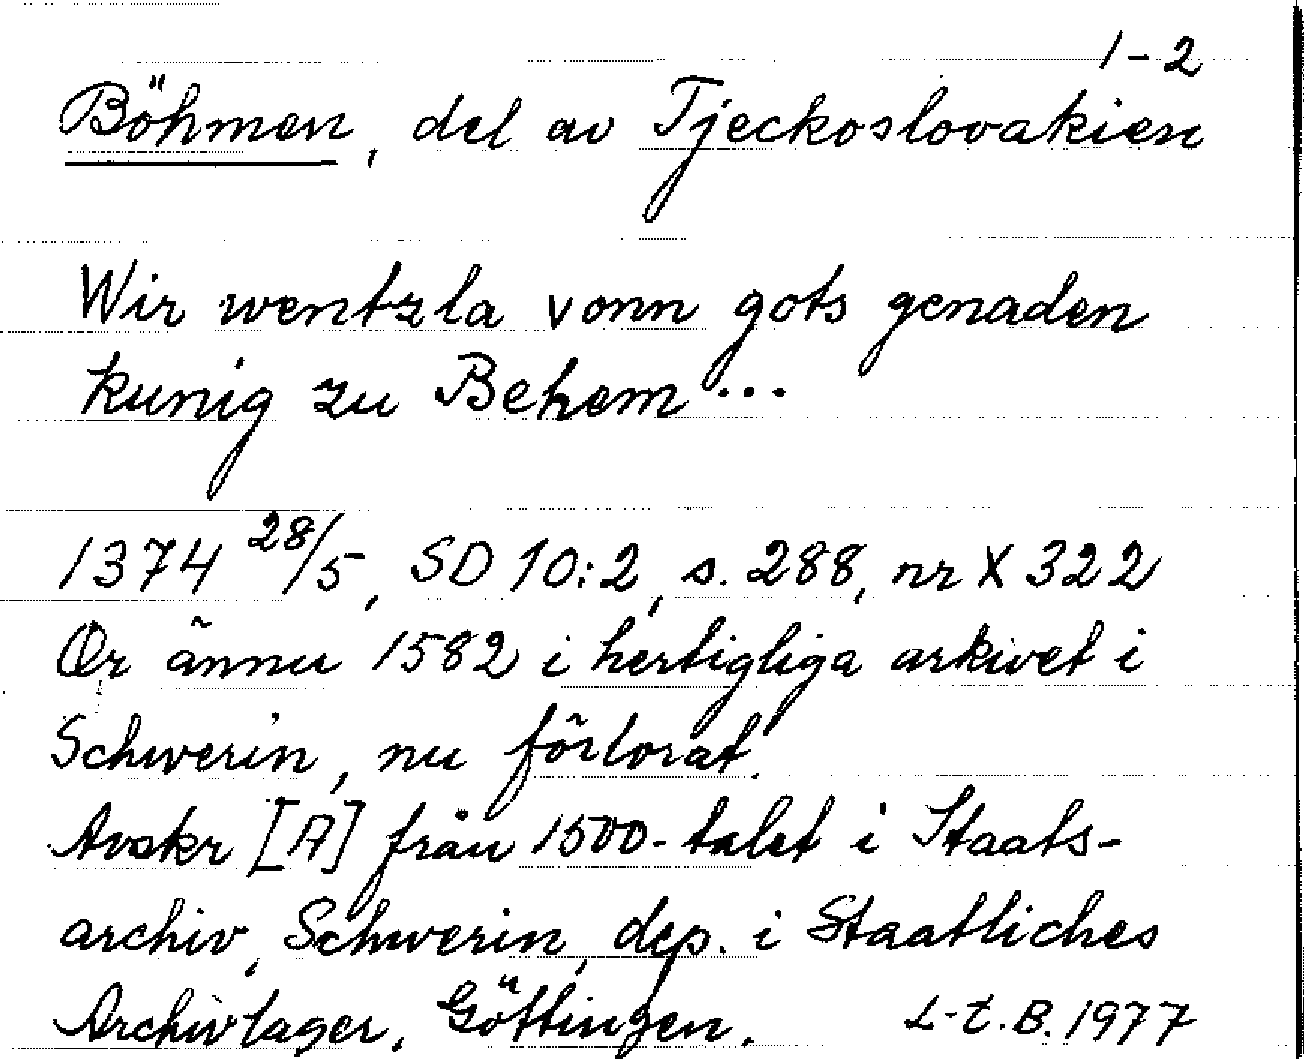 1-2
Böhmen, del av Tjeckoslovakien
Wir wentzla vonn gots genaden
kunig zu Behem...
1374 28/5, SD 10:2, s. 288, nr X 322
Or ännu 1582 i hertigliga arkivet i
Schwerin, nu förlorat.
Avskr [A] från 1500-talet i Staats-
archiv, Schwerin, dep. i Staatliches
Archivlager, Göttingen. L-t.B. 1977